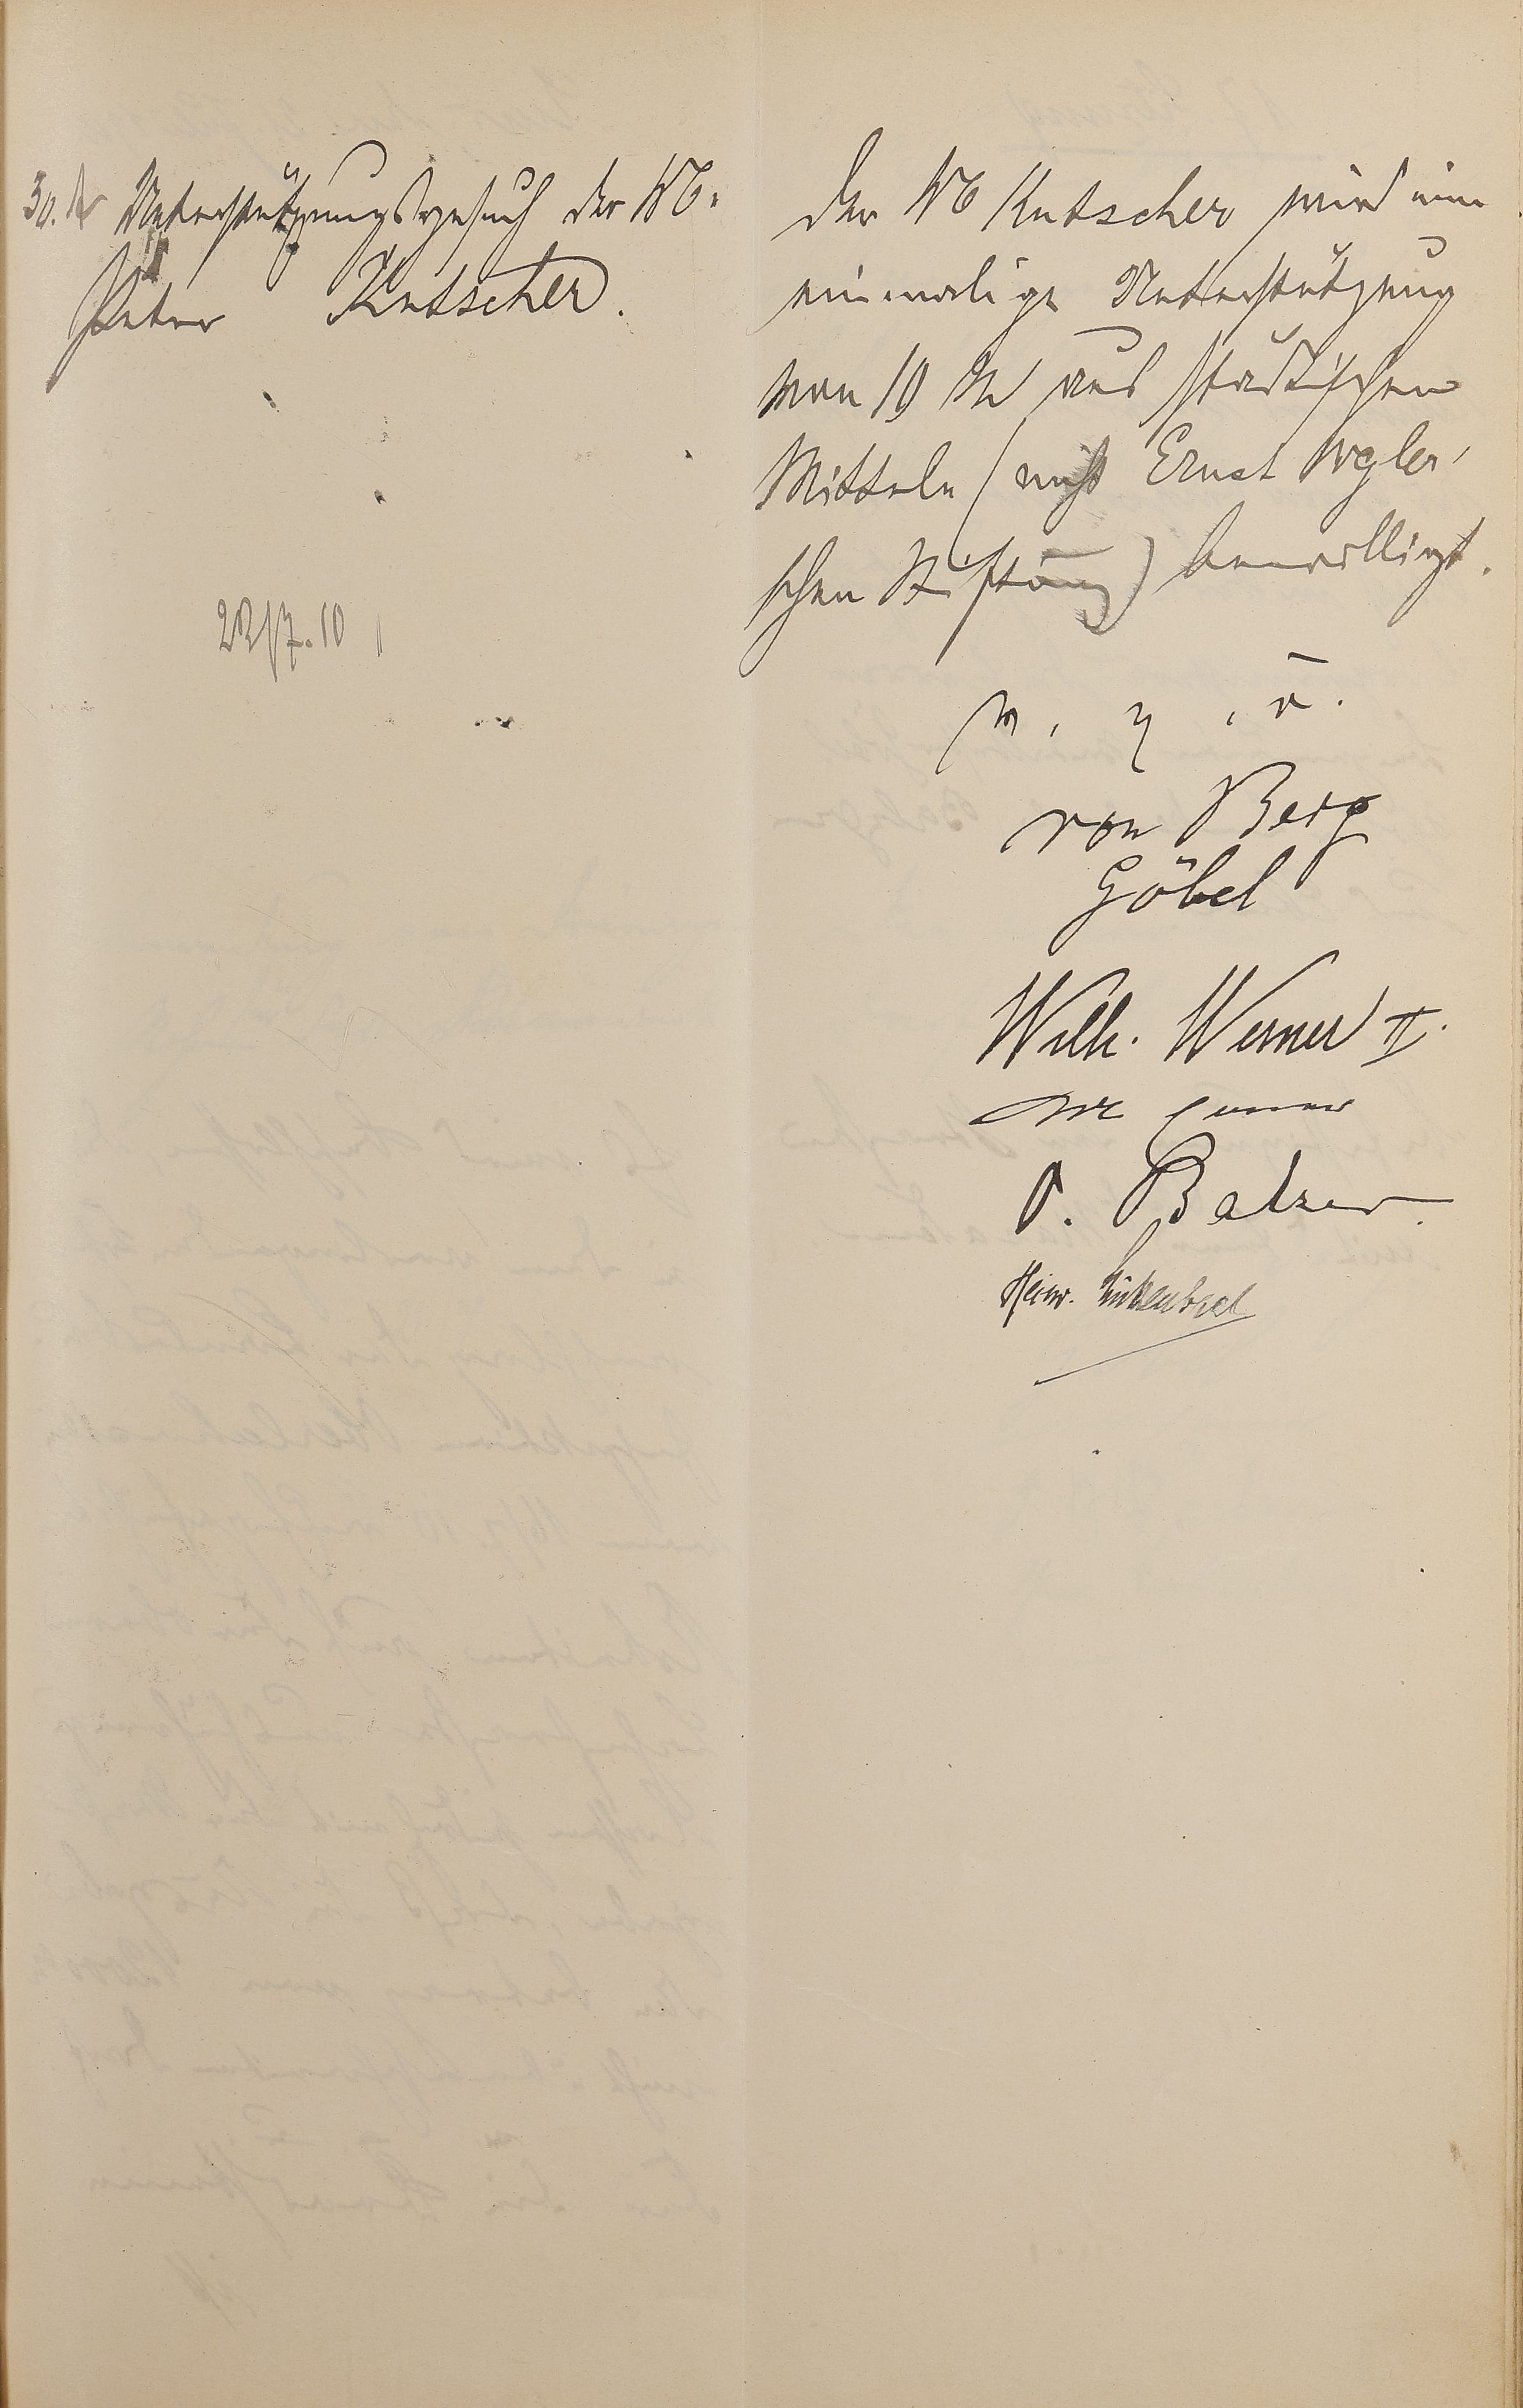 30. Unterstützungsgesuch der Ww.
Peter Kutscher.
22/7.10
Der Ww Kutscher wird eine
einmalige Unterstützung
von 10 M aus städtischen
Mitteln (nicht Ernst
schen Stiftung) bewilligt.
v. g. u.
von Berg
Göbel
Wilh. Werner II.
P. Balzer
Heinr.